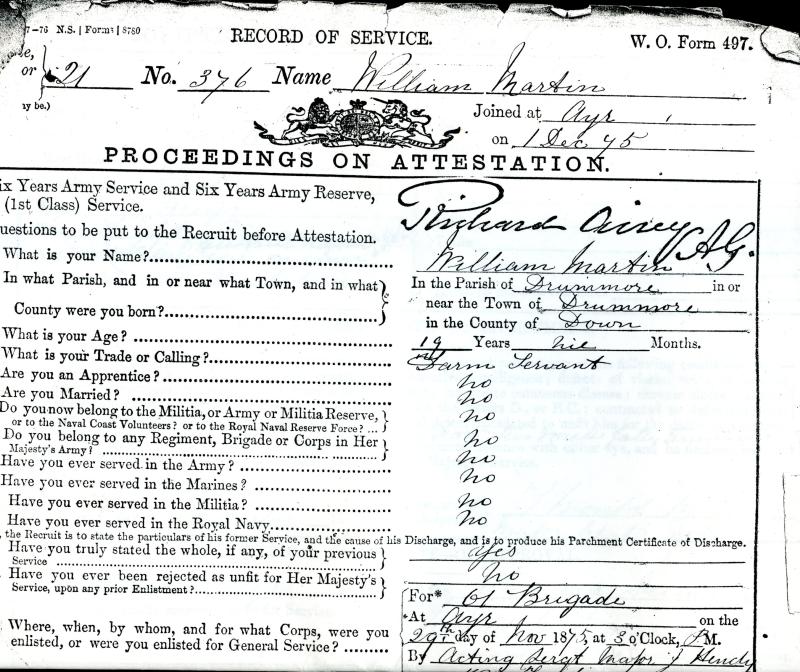 7-76 N.S. | Forms | 8780
RECORD OF SERVICE.
W. O. Form 497.
or 21 No. 376 Name William Martin
ay be.)
Joined at Ayr
on 1 Dec 75
PROCEEDINGS ON ATTESTATION.
ix Years Army Service and Six Years Army Reserve,
(1st Class) Service.
Richard Airey A.G.
uestions to be put to the Recruit before Attestation.
What is your Name? William Martin
In what Parish, and in or near what Town, and in what County were you born?
In the Parish of Drummore in or
near the Town of Drummore
in the County of Down
What is your Age? 19 Years Months.
What is your Trade or Calling? Farm Servant
Are you an Apprentice? no
Are you Married? no
Do you now belong to the Militia, or Army or Militia Reserve,
or to the Naval Coast Volunteers? or to the Royal Naval Reserve Force? no
Do you belong to any Regiment, Brigade or Corps in Her
Majesty's Army? no
Have you ever served in the Army? no
Have you ever served in the Marines? no
Have you ever served in the Militia? no
Have you ever served in the Royal Navy no
, the Recruit is to state the particulars of his former Service, and the cause of his Discharge, and is to produce his Parchment Certificate of Discharge.
Have you truly stated the whole, if any, of your previous
Service yes
Have you ever been rejected as unfit for Her Majesty's
Service, upon any prior Enlistment? no
Where, when, by whom, and for what Corps, were you
enlisted, or were you enlisted for General Service?
For* 61 Brigade
*At Ayr on the
29th day of Nov 1875 at 3 o'Clock, P.M.
By Acting Sergt Major J